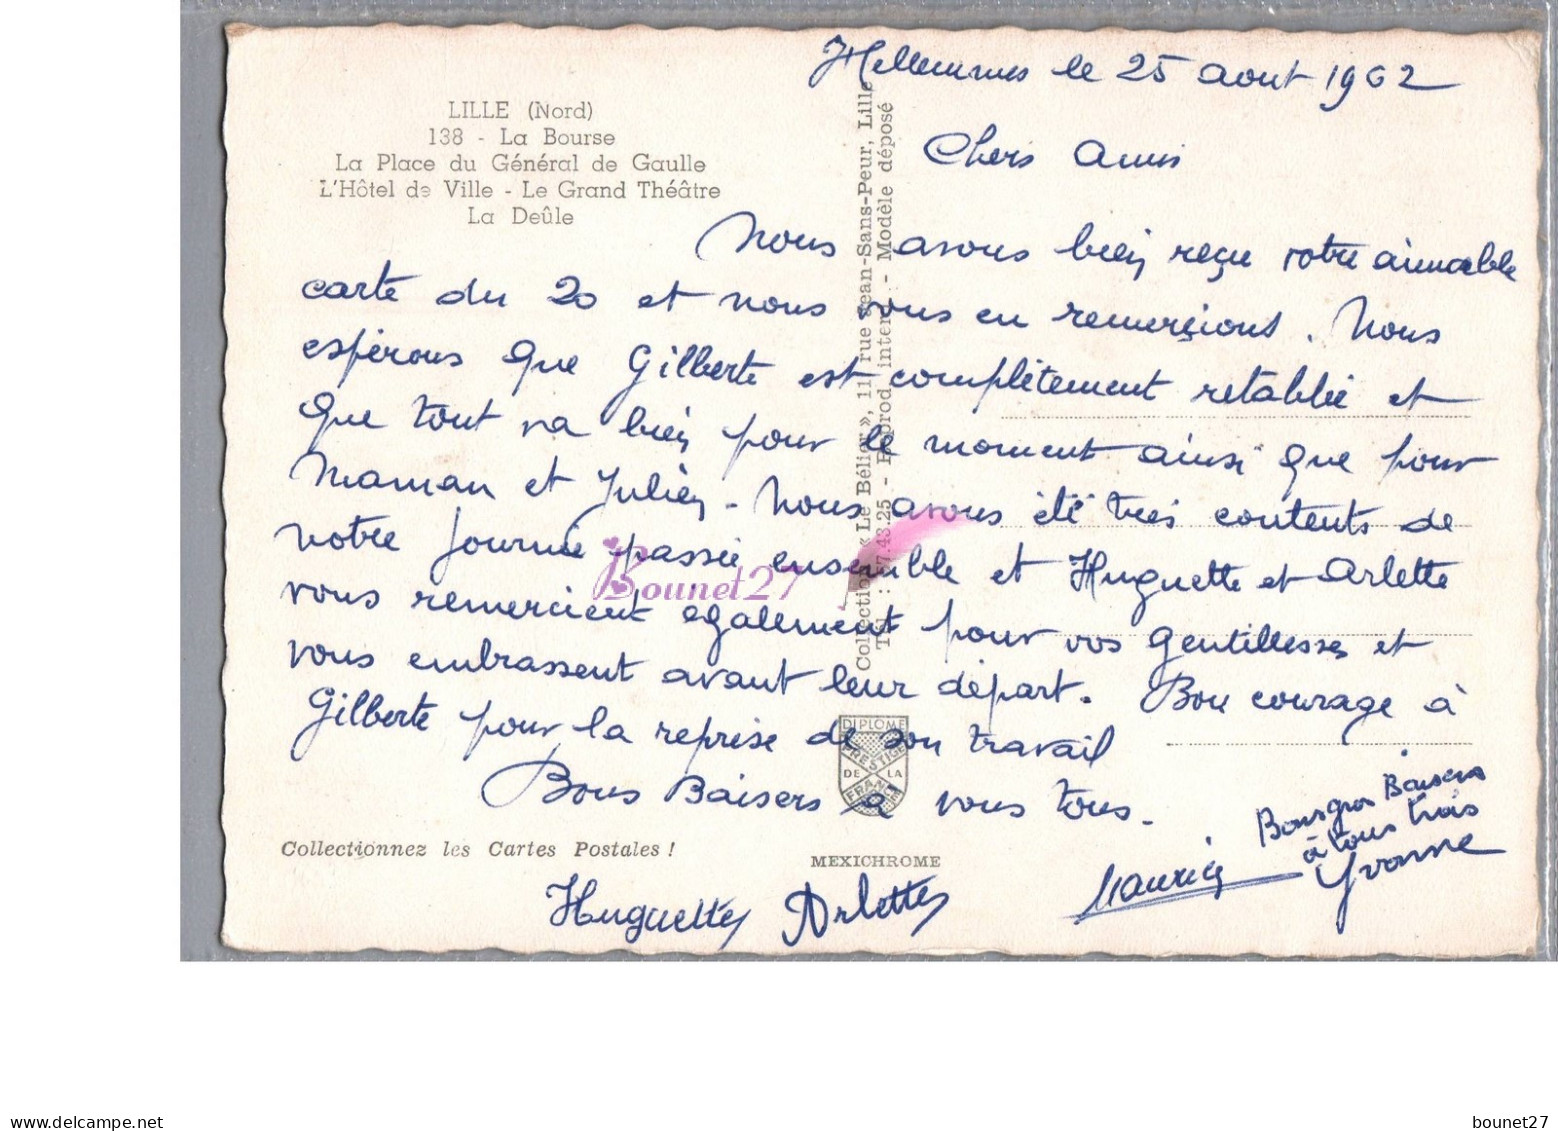 Hellemmes le 25 aout 1962
LILLE (Nord)
138 - La Bourse
La Place du Général de Gaulle
L'Hôtel de Ville - Le Grand Théâtre
La Deûle
Chers Amis
Nous avons bien reçu votre aimable
carte du 20 et nous vous en remerçions. Nous
espérons que Gilberte est complètement retablie et
que tout va bien pour le moment ainsi que pour
Maman et Julien. Nous avons été très contents de
notre journée passée ensemble et Huguette et Arlette
vous remercient egalement pour vos gentillesses et
vous embrassent avant leur départ. Bon courage à
Gilberte pour la reprise de son travail
Bons Baisers à vous tous.
Bons gros Baisers
à tous trois
Yvonne
Maurice
Huguette Arlette
Collectionnez les Cartes Postales !
MEXICHROME
Collection « Le Bélier », 11, rue Jean-Sans-Peur, Lille
Tél : 57.43.25 - Reprod. interd. - Modèle déposé
DIPLOME
PRESTIGE
DE LA
FRANCE
Bounet27
delcampe.net
bounet27